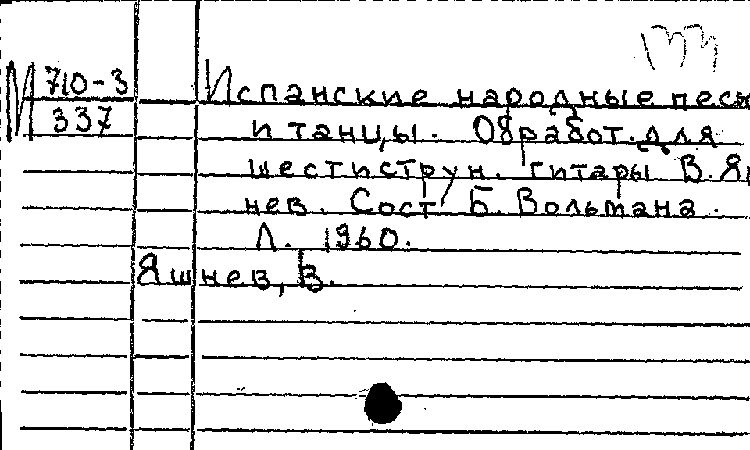 М 710-3
337
Испанские народные песн
и танцы. Обработ. для
шестиструн. гитары В. Яш
нев. Сост. Б. Вольмана.
Л. 1960.
Яшнев, В.